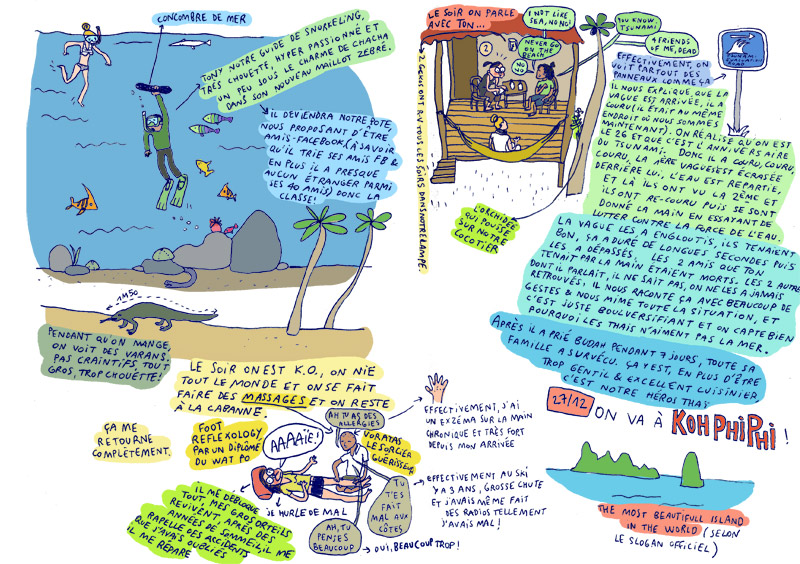 CONCOMBRE DE MER
TONY NOTRE GUIDE DE SNURKELING,
TRÈS CHOUETTE, HYPER PASSIONNÉ ET
UN PEU SOUS LE CHARME DE CHACHA
DANS SON NOUVEAU MAILLOT ZEBRE.
IL DEVIENDRA NOTRE POTE,
NOUS PROPOSANT D'ÊTRE
AMIS-FACEBOOK (À SAVOIR
QU'IL TRIE SES AMIS FB &
EN PLUS IL A PRESQUE
AUCUN ÉTRANGER PARMI
SES 40 AMIS) DONC LA
CLASSE!
1M50
PENDANT QU'ON MANGE,
ON VOIT DES VARANS.
PAS CRAINTIFS, TOUT
GROS, TROP CHOUETTE!
LE SOIR ON EST K.O., ON NIE
TOUT LE MONDE ET ON SE FAIT
FAIRE DES MASSAGES ET ON RESTE
À LA CABANNE.
ÇA ME
RETOURNE
COMPLÈTEMENT.
FOOT
REFLEXOLOGY,
PAR UN DIPLÔMÉ
DU WAT PO
AAAAÏE!
AH TU AS DES
ALLERGIES
VORATAS
LE SORCIER
GUÉRISSEUR
TU
T'ES
FAIT
MAL AUX
CÔTES
AH, TU
PENSES
BEAUCOUP
OUI, BEAUCOUP TROP!
JE HURLE DE MAL
IL ME DÉBLOQUE
TOUS MES GROS ORTEILS
REVIVENT APRÈS DES
ANNÉES DE SOMMEIL, IL ME
RAPELLE DES ACCIDENTS
QUE J'AVAIS OUBLIÉS
IL ME RÉPARE
EFFECTIVEMENT, J'AI
UN EXZÉMA SUR LA MAIN
CHRONIQUE ET TRÈS FORT
DEPUIS MON ARRIVÉE
EFFECTIVEMENT AU SKI
Y A 3 ANS, GROSSE CHUTE
ET J'AVAIS MÊME FAIT
DES RADIOS TELLEMENT
J'AVAIS MAL!
LE SOIR ON PARLE
AVEC TON...
I NOT LIKE
SEA, NO NO!
NEVER GO
ON THE
BEACH
NO
NO
?
YOU KNOW
TSUNAMI
4 FRIENDS
OF ME, DEAD
2 GECKOS ONT RDV TOUS LES SOIRS DANS NOTRE LAMPE.
L'ORCHIDÉE
QUI POUSSE
SUR NOTRE
COCOTIER
EFFECTIVEMENT, ON
VOIT PARTOUT DES
PANNEAUX COMME ÇA
TSUNAMI
EVACUATION
ROAD
IL NOUS EXPLIQUE QUE LA
VAGUE EST ARRIVÉE, IL A
COURU (IL ÉTAIT AU MÊME
ENDROIT OÙ NOUS SOMMES
MAINTENANT). ON RÉALISE QU'ON EST
LE 26 ET QUE C'EST L'ANNIVERSAIRE
DU TSUNAMI. DONC IL A COURU, COURU,
COURU, LA 1ÈRE VAGUE S'EST ÉCRASÉE
DERRIÈRE LUI. L'EAU EST REPARTIE,
ET LÀ ILS ONT VU LA 2ÈME ET
ILS ONT RE-COURU PUIS SE SONT
DONNÉ LA MAIN EN ESSAYANT DE
LUTTER CONTRE LA FORCE DE L'EAU.
LA VAGUE LES A ENGLOUTIS, ILS TENAIENT
BON, ÇA A DURÉ DE LONGUES SECONDES PUIS
LES A DÉPASSÉS. LES 2 AMIS QUE TON
TENAIT PAR LA MAIN ÉTAIENT MORTS. LES 2 AUTRES
DONT IL PARLAIT, IL NE SAIT PAS, ON NE LES A JAMAIS
RETROUVÉS, IL NOUS RACONTE ÇA AVEC BEAUCOUP DE
GESTES & NOUS MIME TOUTE LA SITUATION, ET
C'EST JUSTE BOULVERSIFIANT ET ON CAPTE BIEN
POURQUOI LES THAÏS N'AIMENT PAS LA MER.
APRÈS IL A PRIÉ BUDAH PENDANT 7 JOURS, TOUTE SA
FAMILLE A SURVÉCU. ÇA YEST, EN PLUS D'ÊTRE
TROP GENTIL & EXCELLENT CUISINIER
C'EST NOTRE HÉROS THAÏ
27/12 ON VA À KOH PHI PHI!
THE MOST BEAUTIFULL ISLAND
IN THE WORLD (SELON
LE SLOGAN OFFICIEL)